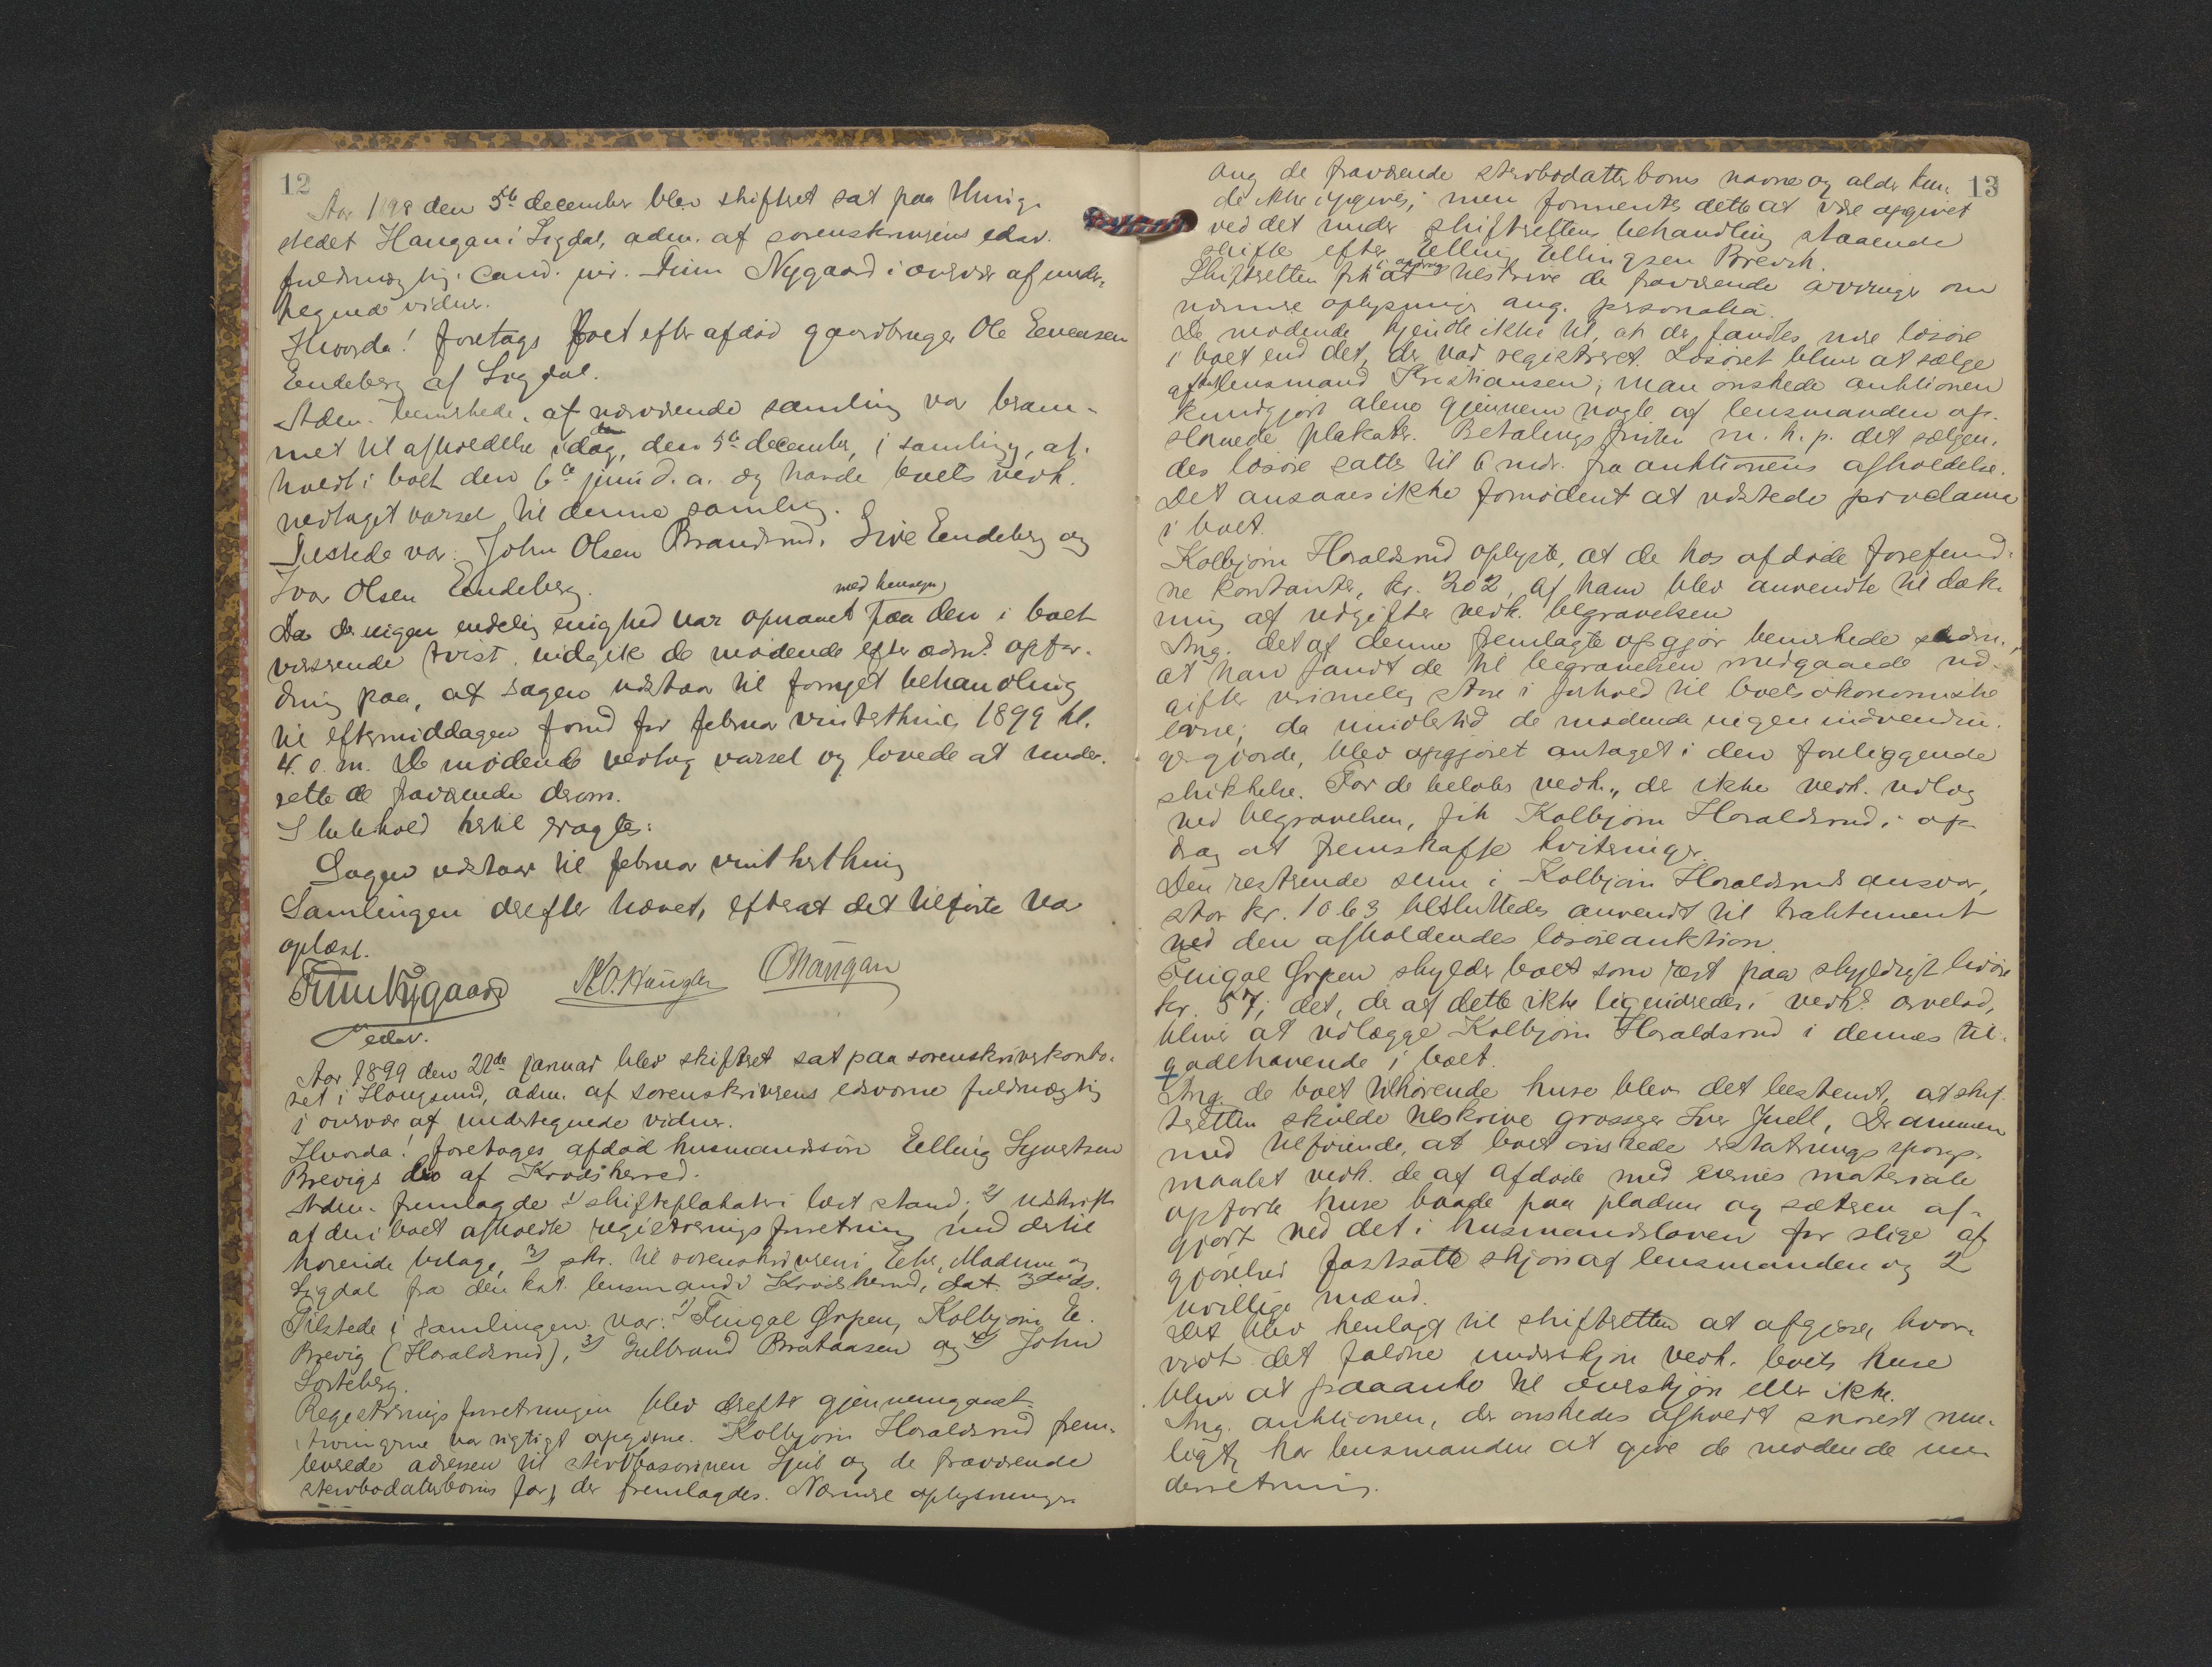 12
Aar 1898 den 5te december blev skifteret sat paa thing-
stedet Haugan i Sigdal, adm. af sorenskriverens edsv.
fuldmægtig cand. jur. Finn Nygaard i overvær af under-
tegnede vidner.
Hvorda! foretages boet efter afdød gaardbruger Ole Evensen
Eendeberg af Sigdal.
Adm. bemerkede, at nærværende samling var beram-
met til afholdelse idag, den 5te december, i samling, af-
holdt i boet den 6te juni d. a. og havde boets vedk.
vedtaget varsel til denne samling.
Tilstede var: John Olsen Brandsrud, Live Eendeberg og
Ivar Olsen Eendeberg.
med hensyn
Da der ingen endelig enighed var opnaaet paa den i boet
værende tvist, indgik de mødende efter adm.s opfor-
dring paa, at sagen udstaar til fornyet behandling
til eftermiddagen forud for februar vinterthing 1899 kl.
4 e. m. De mødende vedtog varsel og lovede at under-
rette de fraværende derom.
I henhold hertil eragtes:
Sagen udstaar til februar vinterthing
Samlingen derefter hævet, efterat det tilførte var
oplæst.
Finn Nygaard K.O. Haugan O Haugan
edsv.
Aar 1899 den 21de januar blev skifteret sat paa sorenskriverkonto-
ret i Hougsund, adm. af sorenskriverens edsvorne fuldmægtig
i overvær af undertegnede vidner.
Hvorda! foretages afdød husmandssøn Elling Syvertsen
Brevigs bo af Krødsherred.
Adm. fremlagde 1) skifteplakater i læst stand, 2) udskrift
af den i boet afholdte registreringsforretning med dertil
hørende bilage, 3) skr. til sorenskriveren i Eker, Modum og
Sigdal fra den kst. lensmand i Krødsherred, dat. 3die ds.
Tilstede i samlingen var: 1) Fingal Ørpen, Kolbjørn E.
Brevig (Haraldsrud), 3) Gulbrand Brataasen og 4) John
Sorteberg.
Registreringsforretningen blev derefter gjennemgaaet.
Arvingerne var rigtigt opgivne. Kolbjørn Haraldsrud frem-
leverede adressen til stervbosønnen Syver og de fraværende
stervbodatterbørns far, der fremlagdes. Nærmere oplysninger
13
ang de fraværende stervbodatterbørns navne og alder kun-
de ikke opgives, men formentes dette at være opgivet
ved det under skifterettens behandling staaende
skifte efter Elling Ellingsen Brevik.
i opdrag
Skifteretten fik at tilskrive de fraværende arvinger om
nærmere oplysninger ang. personalia.
De mødende kjendte ikke til, at der fandtes mere løsøre
i boet end det, der var registreret. Løsøret bliver at sælge
af lensmand Kristiansen; man ønskede auktionen
kundgjort alene gjennem nogle af lensmanden op-
slaaede plakater. Betalingsfristen m. h. p. det sælgen-
des løsøre sattes til 6 mdr. fra auktionens afholdelse.
Det ansaaes ikke fornødent at udstede proclama
i boet.
Kolbjørn Haraldsrud oplyste, at de hos afdøde forefund-
ne kontanter, kr. 202, af ham blev anvendte til dæk-
ning af udgifter vedk. begravelsen
Ang. det af denne fremlagte opgjør bemerkede adm.,
at han fandt de til begravelsen medgaaede ud-
gifter urimelig store i forhold til boets økonomiske
evne; da imidlertid de mødende ingen indvendin-
ger gjorde, blev opgjøret antaget i den foreliggende
skikkelse. For de beløbs vedk., der ikke vedk. udlæg
ved begravelsen, fik Kolbjørn Haraldsrud i op-
drag at fremskaffe kvitteringer.
Den resterende sum i Kolbjørn Haraldsruds ansvar,
stor kr. 10 63 besluttedes anvendt til traktement
ved den afholdendes løsøreauktion.
Fingal Ørpen skylder boet som rest paa skyldigt livøre
kr. 57; det, der af dette ikke ligvideredes i vedk.s arvelod,
bliver at udlægge Kolbjørn Haraldsrud i dennes til-
godehavende i boet.
Ang. de boet tilhørende huse blev det bestemt, at skif-
teretten skulde tilskrive grosserer Iver Juell, Drammen
med tilføiende, at boet ønskede erstatningsspørgs-
maalet vedk. de af afdøde med eiernes materiale
opførte huse baade paa pladsen og sætren af-
gjort ved det i husmandsloven for slige af
gjørelser fastsatte skjøn af lensmanden og 2
uvillige mænd.
Det blev henlagt til skifteretten at afgjøre, hvor-
vidt det faldne underskjøn vedk. boets huse
bliver at paaanke til overskjøn eller ikke.
Ang. auktionen, der ønskedes afholdt snarest mu-
ligt, har lensmanden at give de mødende un-
derretning.